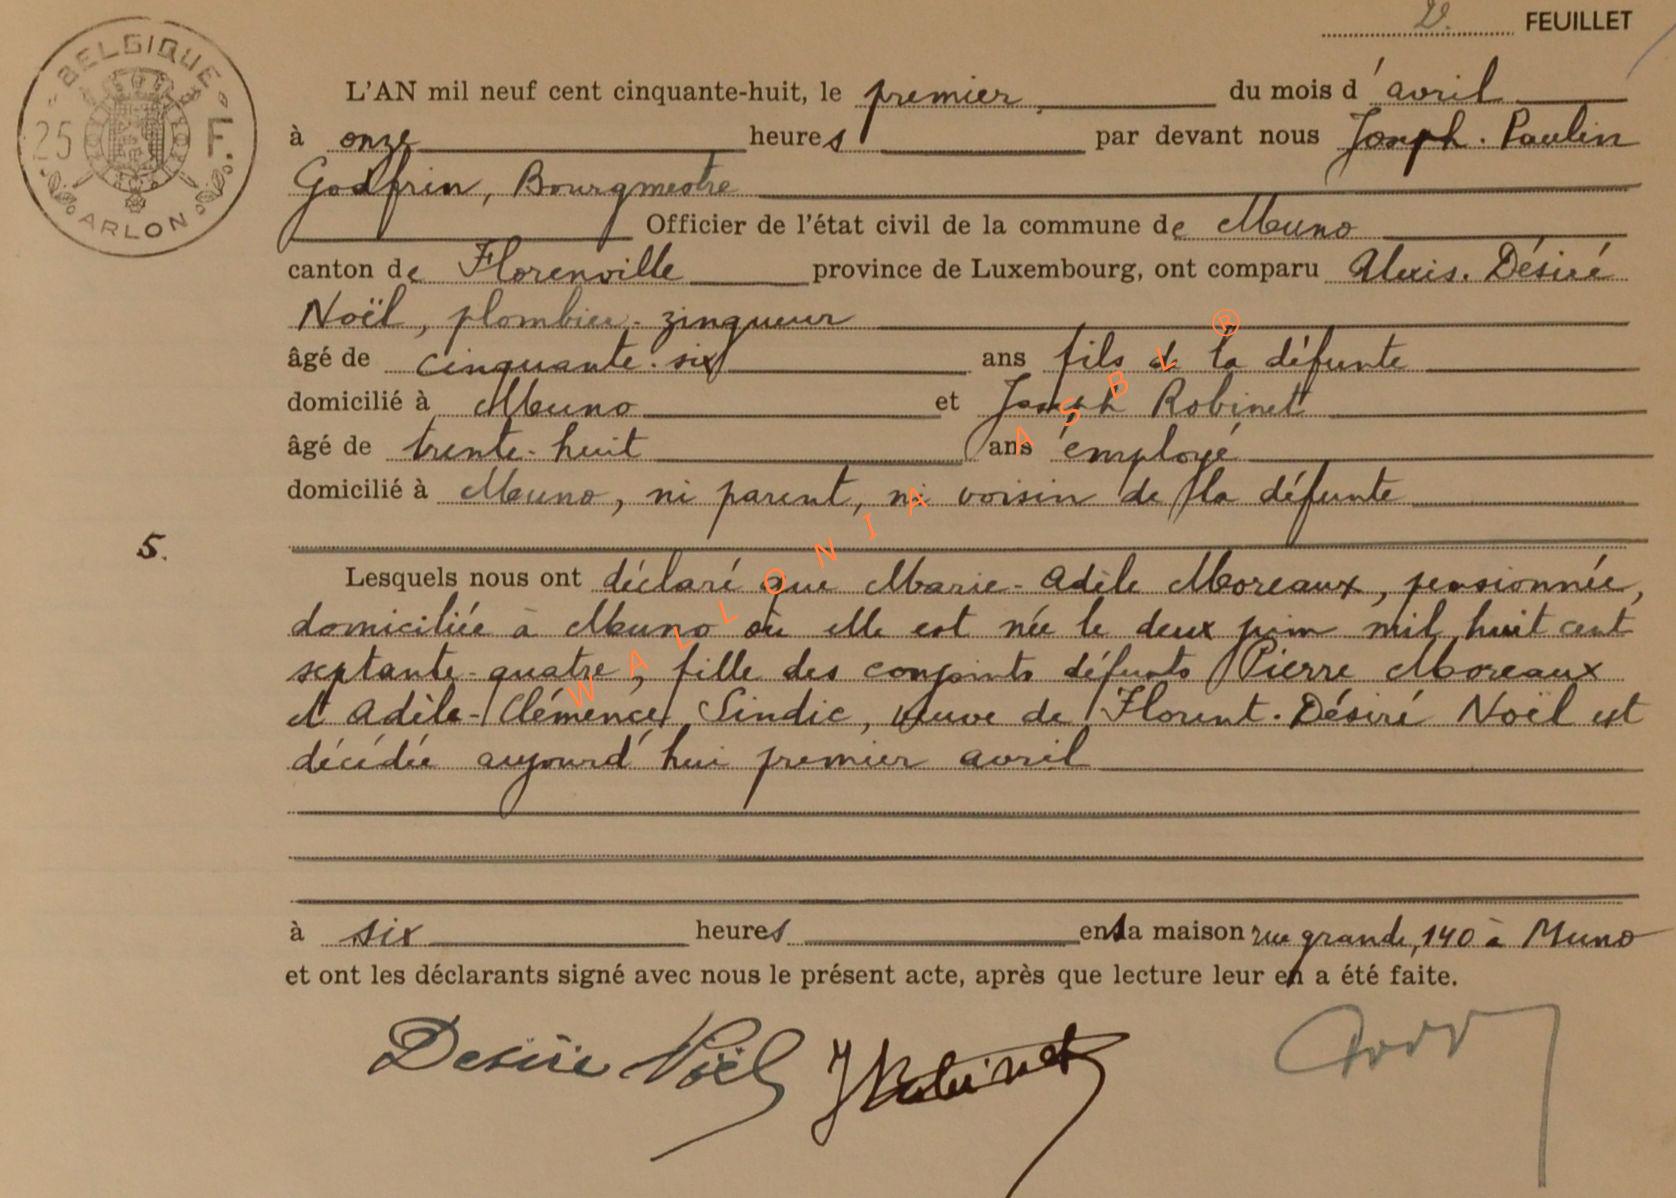 2. FEUILLET
BELGIQUE
25 F.
ARLON
L'AN mil neuf cent cinquante-huit, le premier du mois d'avril
à onze heures par devant nous Joseph-Paulin
Godfrin, Bourgmestre
Officier de l'état civil de la commune de Muno
canton de Florenville province de Luxembourg, ont comparu Alexis-Désiré
Noël, plombier-zingueur
âgé de cinquante-six ans fils de la défunte
domicilié à Muno et Joseph Robinet
âgé de trente-huit ans employé
domicilié à Muno, ni parent, ni voisin de la défunte
5.
Lesquels nous ont déclaré que Marie-Adèle Moreaux, pensionnée,
domiciliée à Muno où elle est née le deux juin mil huit cent
septante-quatre, fille des conjoints défunts Pierre Moreaux
et Adèle-Clémence Sindic, veuve de Florent-Désiré Noël est
décédée aujourd'hui premier avril
à six heures en sa maison rue grande, 140 à Muno
et ont les déclarants signé avec nous le présent acte, après que lecture leur en a été faite.
Désiré Noël JRobinet
WALLONIA ASBL ®